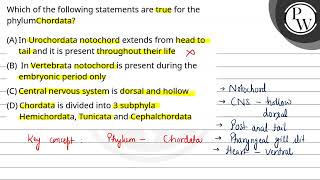 Which of the following statements are true for the
phylumChordata?
(A) In Urochordata notochord extends from head to
tail and it is present throughout their life
(B) In Vertebrata notochord is present during the
embryonic period only
(C) Central nervous system is dorsal and hollow
(D) Chordata is divided into 3 subphyla
Hemichordata, Tunicata and Cephalchordata
Key concept : Phylum - Chordata
→ Notochord
→ CNS - hollow
dorsal
→ Post anal tail
→ Pharyngeal gill slit
→ Heart - ventral
PW